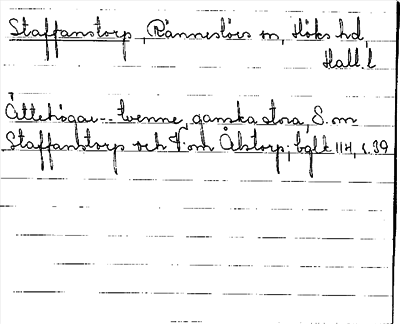 Staffanstorp, Ränneslövs sn, Höks hd,
Hall. l
Ättehögar -- tvenne, ganska stora, S. om
Staffanstorp och V. om Ålstorp; bglt 114, s. 39